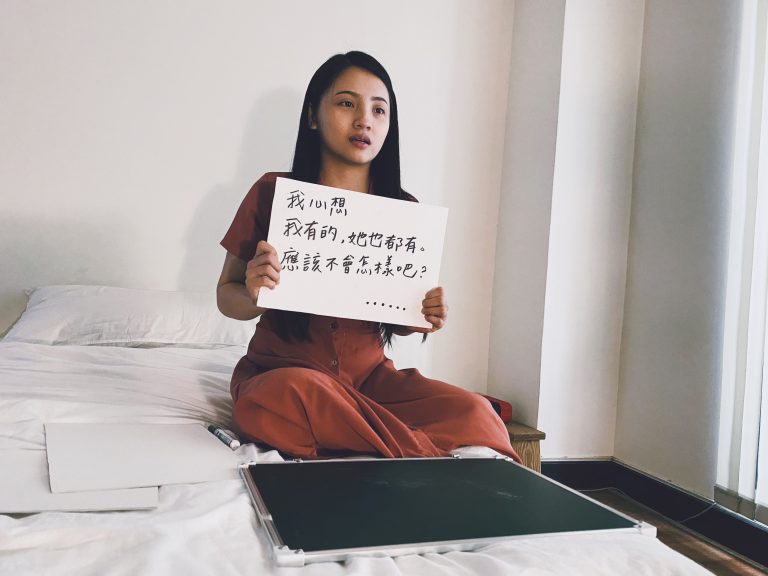 我心想
我有的，她也都有。
應該不會怎樣吧？
......